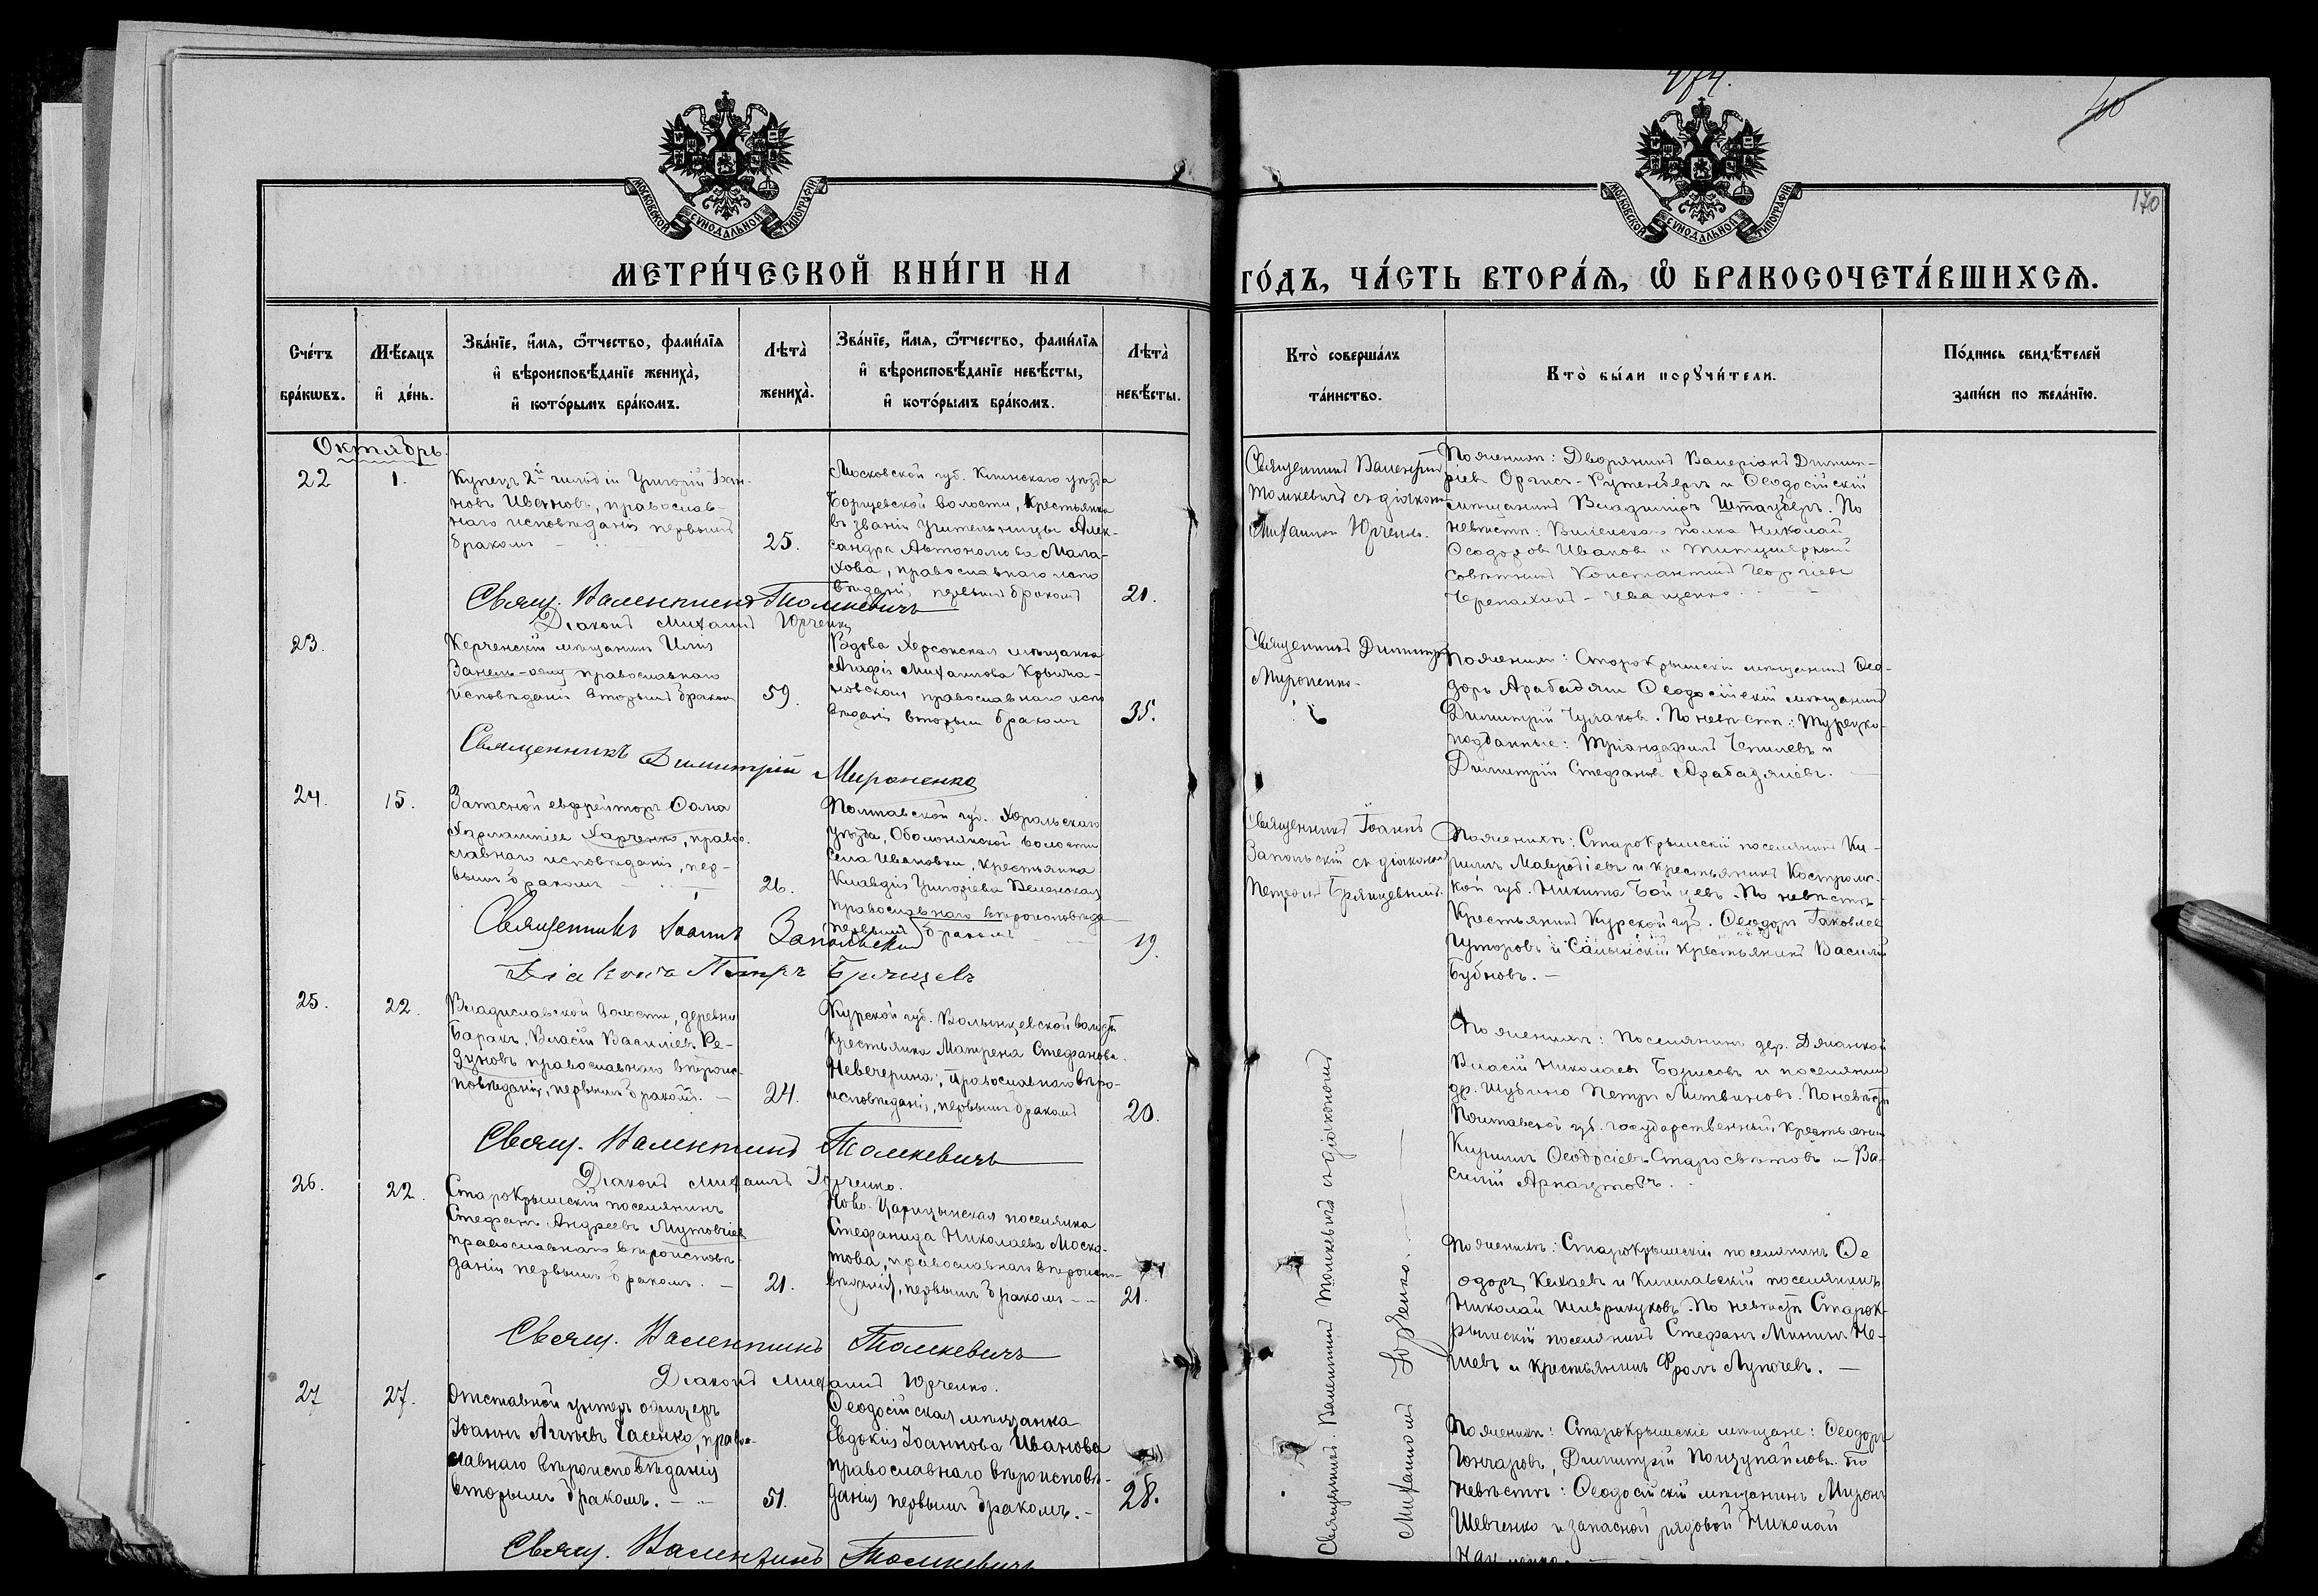 474.
40
170
МОСКОВСКОЙ СѴНОДАЛЬНОЙ ТИПОГРАФІИ
МОСКОВСКОЙ СѴНОДАЛЬНОЙ ТИПОГРАФІИ
МЕТРИ́ЧЕСКОЙ КНИ́ГИ НА
ГО́ДЪ, ЧА́СТЬ ВТОРА́Ѧ, Ѿ БРАКОСОЧЕТА́ВШИХСѦ.
Сче́тъ
бра́кѡвъ.
Мѣ́сяцъ
и де́нь.
Зва́нїе, и́мя, ѻ́тчество, фами́лїя
и вѣроисповѣ́данїе жениха̀,
и кото́рымъ бра́комъ.
Лѣта̀
жениха̀.
Зва́нїе, и́мя, ѻ́тчество, фами́лїя
и вѣроисповѣ́данїе невѣ́сты,
и кото́рымъ бра́комъ.
Лѣта̀
невѣ́сты.
Кто̀ соверша́лъ
та́инство.
Кто̀ бы́ли порꙋчи́тели.
По́дпись свидѣ́телей
за́писи по жела́нїю.
Октябрь.
22
1.
Купецъ 2й гильдіи Григорій Іоан-
новъ Ивановъ, православ-
наго исповѣданія первымъ
бракомъ
25.
Московской губ. Клинскаго уѣзда
Борщевской волости, Крестьянка
въ званіи учительницы Алек-
сандра Автономова Мала-
хова, православнаго испо
вѣданія, первымъ бракомъ
21.
Священникъ Валентинъ
Томкевичъ съ діакономъ
Михаиломъ Юрченко.
По женихѣ: Дворянинъ Валеріанъ Димит-
ріевъ Оргисъ-Рутенбергъ и Ѳеодосійскій
мѣщанинъ Владиміръ Штауберъ. По
невѣстѣ: Виленскаго полка Николай
Ѳеодоровъ Ивановъ и Титулярный
совѣтникъ Константинъ Георгіевъ
Черепахинъ-Иващенко.
Свящ. Валентинъ Томкевичъ
Діаконъ Михаилъ Юрченко
23.
Керченскій мѣщанинъ Илія
православнаго
исповѣданія вторымъ бракомъ
59.
Вдова Херсонская мѣщанка
Агафія Михаилова Крыжа-
новская православнаго испо
вѣданія вторымъ бракомъ
35.
Священникъ Димитрій
Мироненко.
По женихѣ: Старокрымскій мѣщанинъ Ѳео-
доръ Арабаджи Ѳеодосійскій мѣщанинъ
Димитрій Чулаковъ. По невѣстѣ: Турецко-
подданные: Тріандафилъ и
Димитрій Стефановъ Арабаджіевъ.
Священникъ Димитрій Мироненко
24.
15.
Запасной ефрейторъ Ѳома
Харлампіевъ Харченко, право-
славнаго исповѣданія, пер-
вымъ бракомъ
26.
Полтавской губ. Хорольскаго
уѣзда, Оболонянской волости
села Ивановки, крестьянка
Клавдія Григоріева
православнаго вѣроисповѣда-
первымъ бракомъ
19.
Священникъ Іоаннъ
Запольскій съ діакономъ
Петромъ Брянцевымъ.
По женихѣ: Старокрымскій поселянинъ Ки-
риллъ Мавродіевъ и крестьянинъ Костром-
кой губ. Никита Бойцевъ. По невѣстѣ:
Крестьянинъ Курской губ. Ѳеодоръ Іаковлев
Гуторовъ и крестьянинъ Василій
Бубновъ.
Священникъ Іоаннъ Запольскій
Діаконъ Петръ Брянцевъ
25.
22.
Владиславской волости, деревни
Баракъ, Власій Василіевъ Ре-
дуновъ православнаго вѣроис-
повѣданія, первымъ бракомъ.
24.
Курской губ. Волынцевской волости
Крестьянка Матрена Стефанова
Невечерина, православнаго вѣро-
исповѣданія, первымъ бракомъ
20.
По женихѣ: поселянинъ дер. Джанкой
Власій Николаевъ Борисовъ и поселянинъ
др. Шубино Петръ Литвиновъ. По невѣстѣ
Полтавской губ. государственный крестьянин
Кириллъ Ѳеодосіевъ Старосвѣтовъ и Ва-
силій Арнаутовъ.
Свящ. Валентинъ Томкевичъ
Діаконъ Михаилъ Юрченко.
26.
22.
Старокрымскій поселянинъ
Стефанъ Андреевъ Мутовчіев
православнаго вѣроисповѣ-
данія первымъ бракомъ.
21.
Ново-Царицынская поселянка
Стефанида Николаева Моска-
това, православнаго вѣроиспо-
вѣданія, первымъ бракомъ
21.
Священникъ Валентинъ Томкевичъ съ діакономъ
Михаиломъ Юрченко.
По женихѣ: Старокрымскій поселянинъ Ѳе
одоръ Кехаевъ и Кишлавскій поселянинъ
Николай По невѣстѣ Старок-
рымскій поселянинъ Стефанъ Мининъ Не-
и крестьянинъ Фролъ Лупачевъ.
Свящ. Валентинъ Томкевичъ
Діаконъ Михаилъ Юрченко.
27
27.
Отставной унтеръ офицеръ
Іоаннъ Аггѣевъ Гасенко, право-
славнаго вѣроисповѣданія
вторымъ бракомъ.
51.
Ѳеодосійская мѣщанка
Евдокія Іоаннова Иванова
православнаго вѣроисповѣ-
данія первымъ бракомъ.
28.
По женихѣ: Старокрымскіе мѣщане: Ѳеодоръ
Гончаровъ, Димитрій По
невѣстѣ: Ѳеодосійскій мѣщанинъ Миронъ
Шевченко и запасной рядовой Николай
Свящ. Валентинъ Томкевичъ